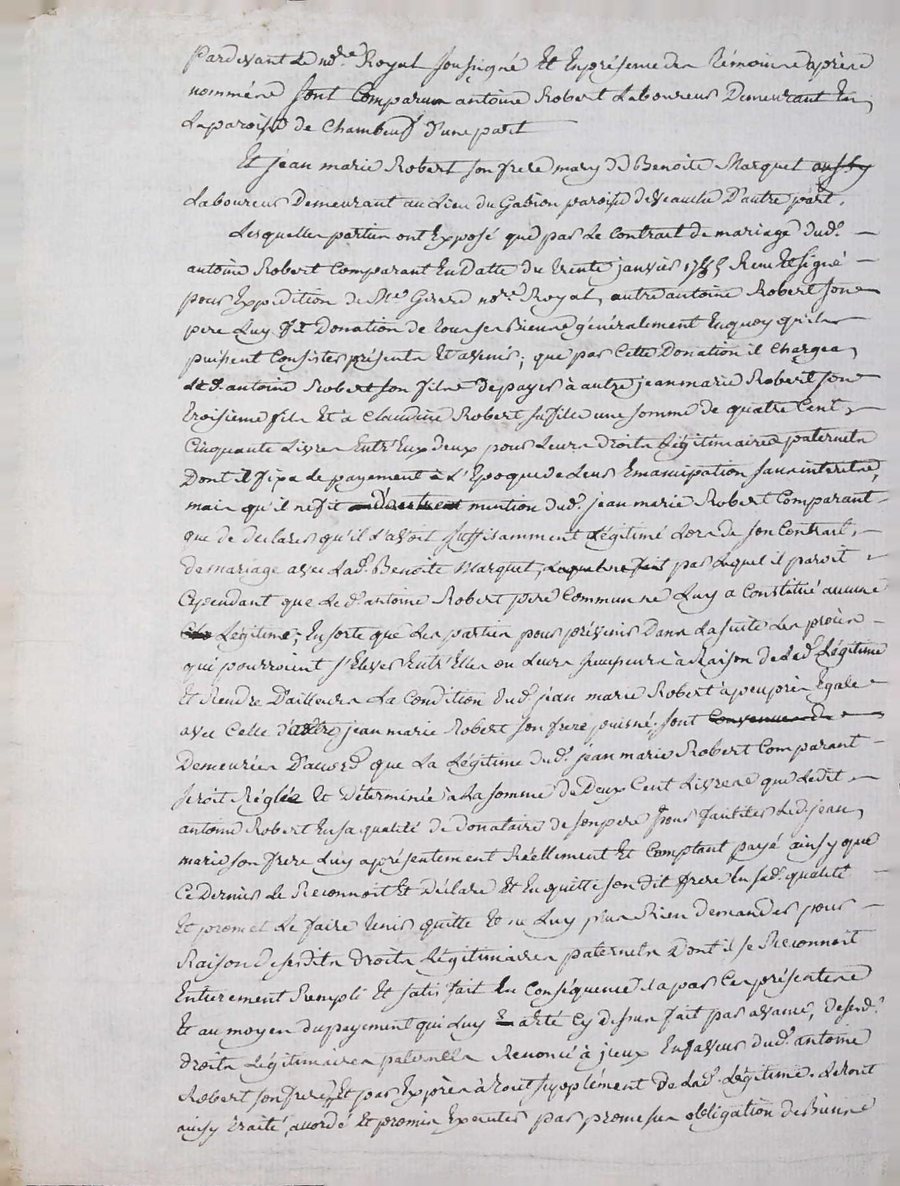 Pardevant Le nore Royal soussigné Et En présence des Témoins après
nommés sont Comparus antoine Robert Laboureur Demeurant En
La paroisse de Chambeuf d'une part
Et jean marie Robert son frere mary de Benoite Marquet aussy
Laboureur Demeurant au Lieu du Gabion paroisse de Veauche D'autre part.
Lesquelles parties ont Exposé que par Le Contrat de mariage dud.
antoine Robert Comparant En Datte du trente janvier Reçu Et signé
pour Expedition de Me Girard nore Royal, autre antoine Robert son
pere Luy fit Donation de tous ses Biens généralement En quoy qu'ils
puissent Consister présents Et avenir; que par Cette Donation il Chargea
led. antoine Robert son fils de payer à autre jean marie Robert son
troisieme fils Et à Claudine Robert sa fille une somme de quatre Cent
Cinquante Livres Entr'Eux deux pour Leurs droits Légitimaires paternels
Dont il fixa Le payement à L'Epoque de Leur Emancipation sans interets,
mais qu'il ne fit mention dud. jean marie Robert Comparant
que de declarer qu'il L'avoit suffisamment Légitimé Lors de son Contrat
de mariage avec Lad. Benoite Marquet, par Lequel il paroit
Cependant que Led. antoine Robert pere Commun ne Luy a Constitué aucune
Légitime; En sorte que Les parties pour prévenir Dans La suite Les procès
qui pourroient s'Elever Entr'Elles ou Leurs successeurs à Raison de Lad. Légitime
Et Rendre D'ailleurs La Condition dud. jean marie Robert à peu près Egale
avec Celle d'autre jean marie Robert son frere puisné. sont Convenues de
Demeurées D'accord que La Légitime dud. jean marie Robert Comparant
seroit Réglée Et Déterminée à La somme de Deux Cent Livres que Ledit
antoine Robert En sa qualité de donataire de son pere Led. jean
marie son frere Luy a présentement Réellement Et Comptant payé ainsy que
Ce Dernier Le Reconnoit Et Déclare Et En quitte son dit frere En sad. qualité
Et promet Le faire tenir quitte Et ne Luy plus Rien demander pour
Raison de sesdits droits Légitimaires paternels Dont il se Reconnoit
Entierement Rempli Et satisfait En Conséquence il a par Ces présentes
Et au moyen du payement qui Luy a été Cy dessus fait par avance, desd.
droits Légitimaires paternels Renoncé à jceux En faveur dud. antoine
Robert son frere, Et par Exprès à tout supplément de Lad. Légitime. Le tout
ainsy traité, accordé Et promis Executer par promesse obligation de Biens